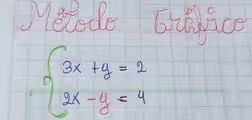 Método Gráfico
3x + y = 2
2x - y = 4